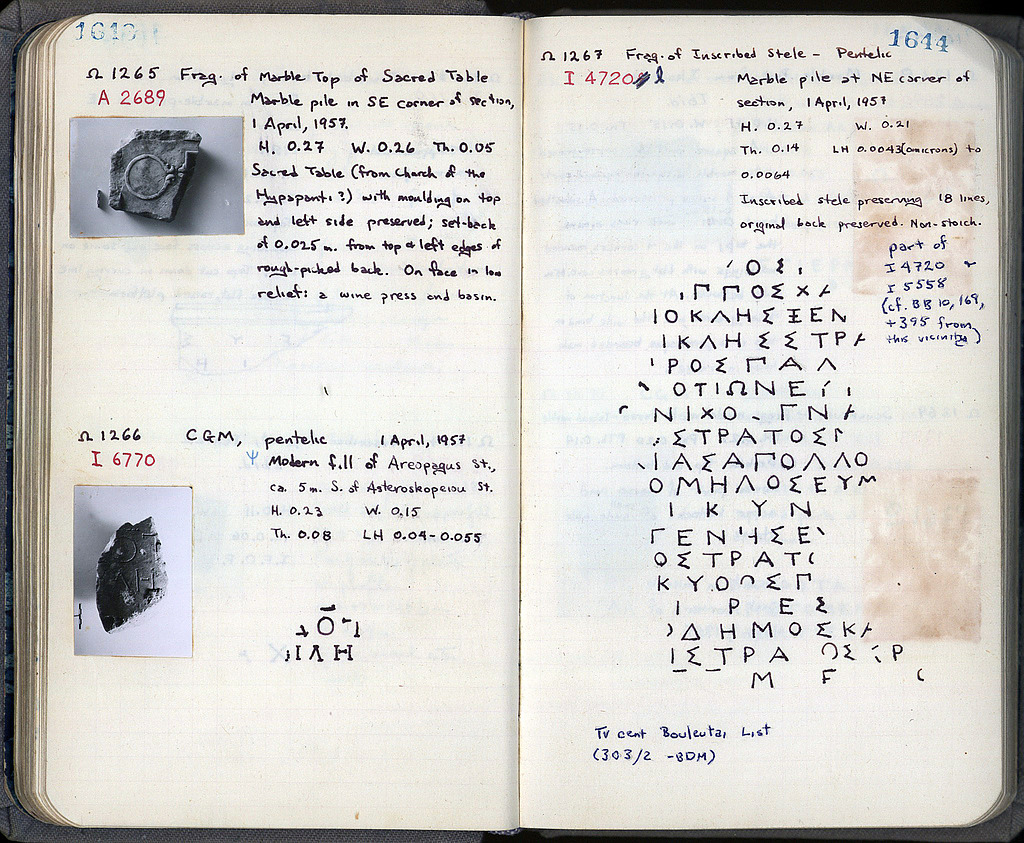 Ω 1265 Frag. of Marble Top of Sacred Table
A 2689
Marble pile in SE corner of section,
1 April, 1957.
H. 0.27 W. 0.26 Th. 0.05
Sacred Table (from Church of the
Hypapanti?) with moulding on top
and left side preserved; set-back
of 0.025 m. from top & left edges of
rough-picked back. On face in low
relief: a wine press and basin.
Ω 1266 CGM, pentelic 1 April, 1957
I 6770
Ψ Modern fill of Areopagus St.,
ca. 5 m. S. of Asteroskopeiou St.
H. 0.23 W. 0.15
Th. 0.08 LH 0.04-0.055
Ο
ΙΛΗ
1644
Ω 1267 Frag. of Inscribed Stele - Pentelic
I 4720
Marble pile at NE corner of
section, 1 April, 1957
H. 0.27 W. 0.21
Th. 0.14 LH 0.0043 (omicrons) to
0.0064
Inscribed stele preserving 18 lines,
original back preserved. Non-stoich.
part of
I 4720 &
I 5558
(cf. BB 10, 169,
+ 395 from
this vicinity)
ΟΣ
ΓΓΟΣΧΑ
ΙΟΚΛΗΣΞΕΝ
ΙΚΛΗΣΣΤΡΑ
ΡΟΣΓΑΛ
ΟΤΙΩΝΕ
ΝΙΧΟ ΓΝΑ
ΣΤΡΑΤΟΣΓ
ΙΑΣΑΓΟΛΛΟ
ΟΜΗΛΟΣΕΥΜ
Ι Κ Υ Ν
ΓΕΝΗΣΕ
ΟΣΤΡΑΤΙ
ΚΥΟΟΣΓ
Ι Ρ Ε Σ
ΔΗΜΟΣΚΑ
ΙΣΤΡΑ ΟΣ Ρ
Μ F
IV cent Bouleutai List
(303/2 -BDM)